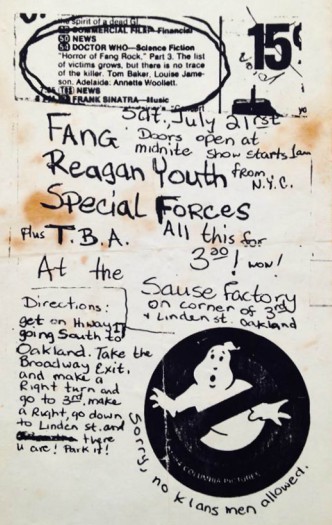 the spirit of a dead Gl
50 COMMERCIAL FILE—Financial
50 NEWS
50 DOCTOR WHO—Science Fiction
"Horror of Fang Rock," Part 3. The list
of victims grows, but there is no trace
of the killer. Tom Baker, Louise Jame-
son. Adelaide: Annette Woollett.
NEWS
FRANK SINATRA—Music
15¢
Sat, July 21rst
FANG
Doors open at
midnite show starts 1am
Reagan Youth from
N.Y.C.
Special Forces
Plus T.B.A.
All this for
3.00! wow!
At the
Sause Factory
on corner of 3rd
+ Linden st. Oakland
Directions:
get on Hiway 17
going South to
Oakland. Take the
Broadway Exit,
and make a
Right turn and
go to 3rd, make
a Right, go down
to Linden st. and
there
u are! Park it!
COLUMBIA PICTURES
Sorry, no klans men allowed.